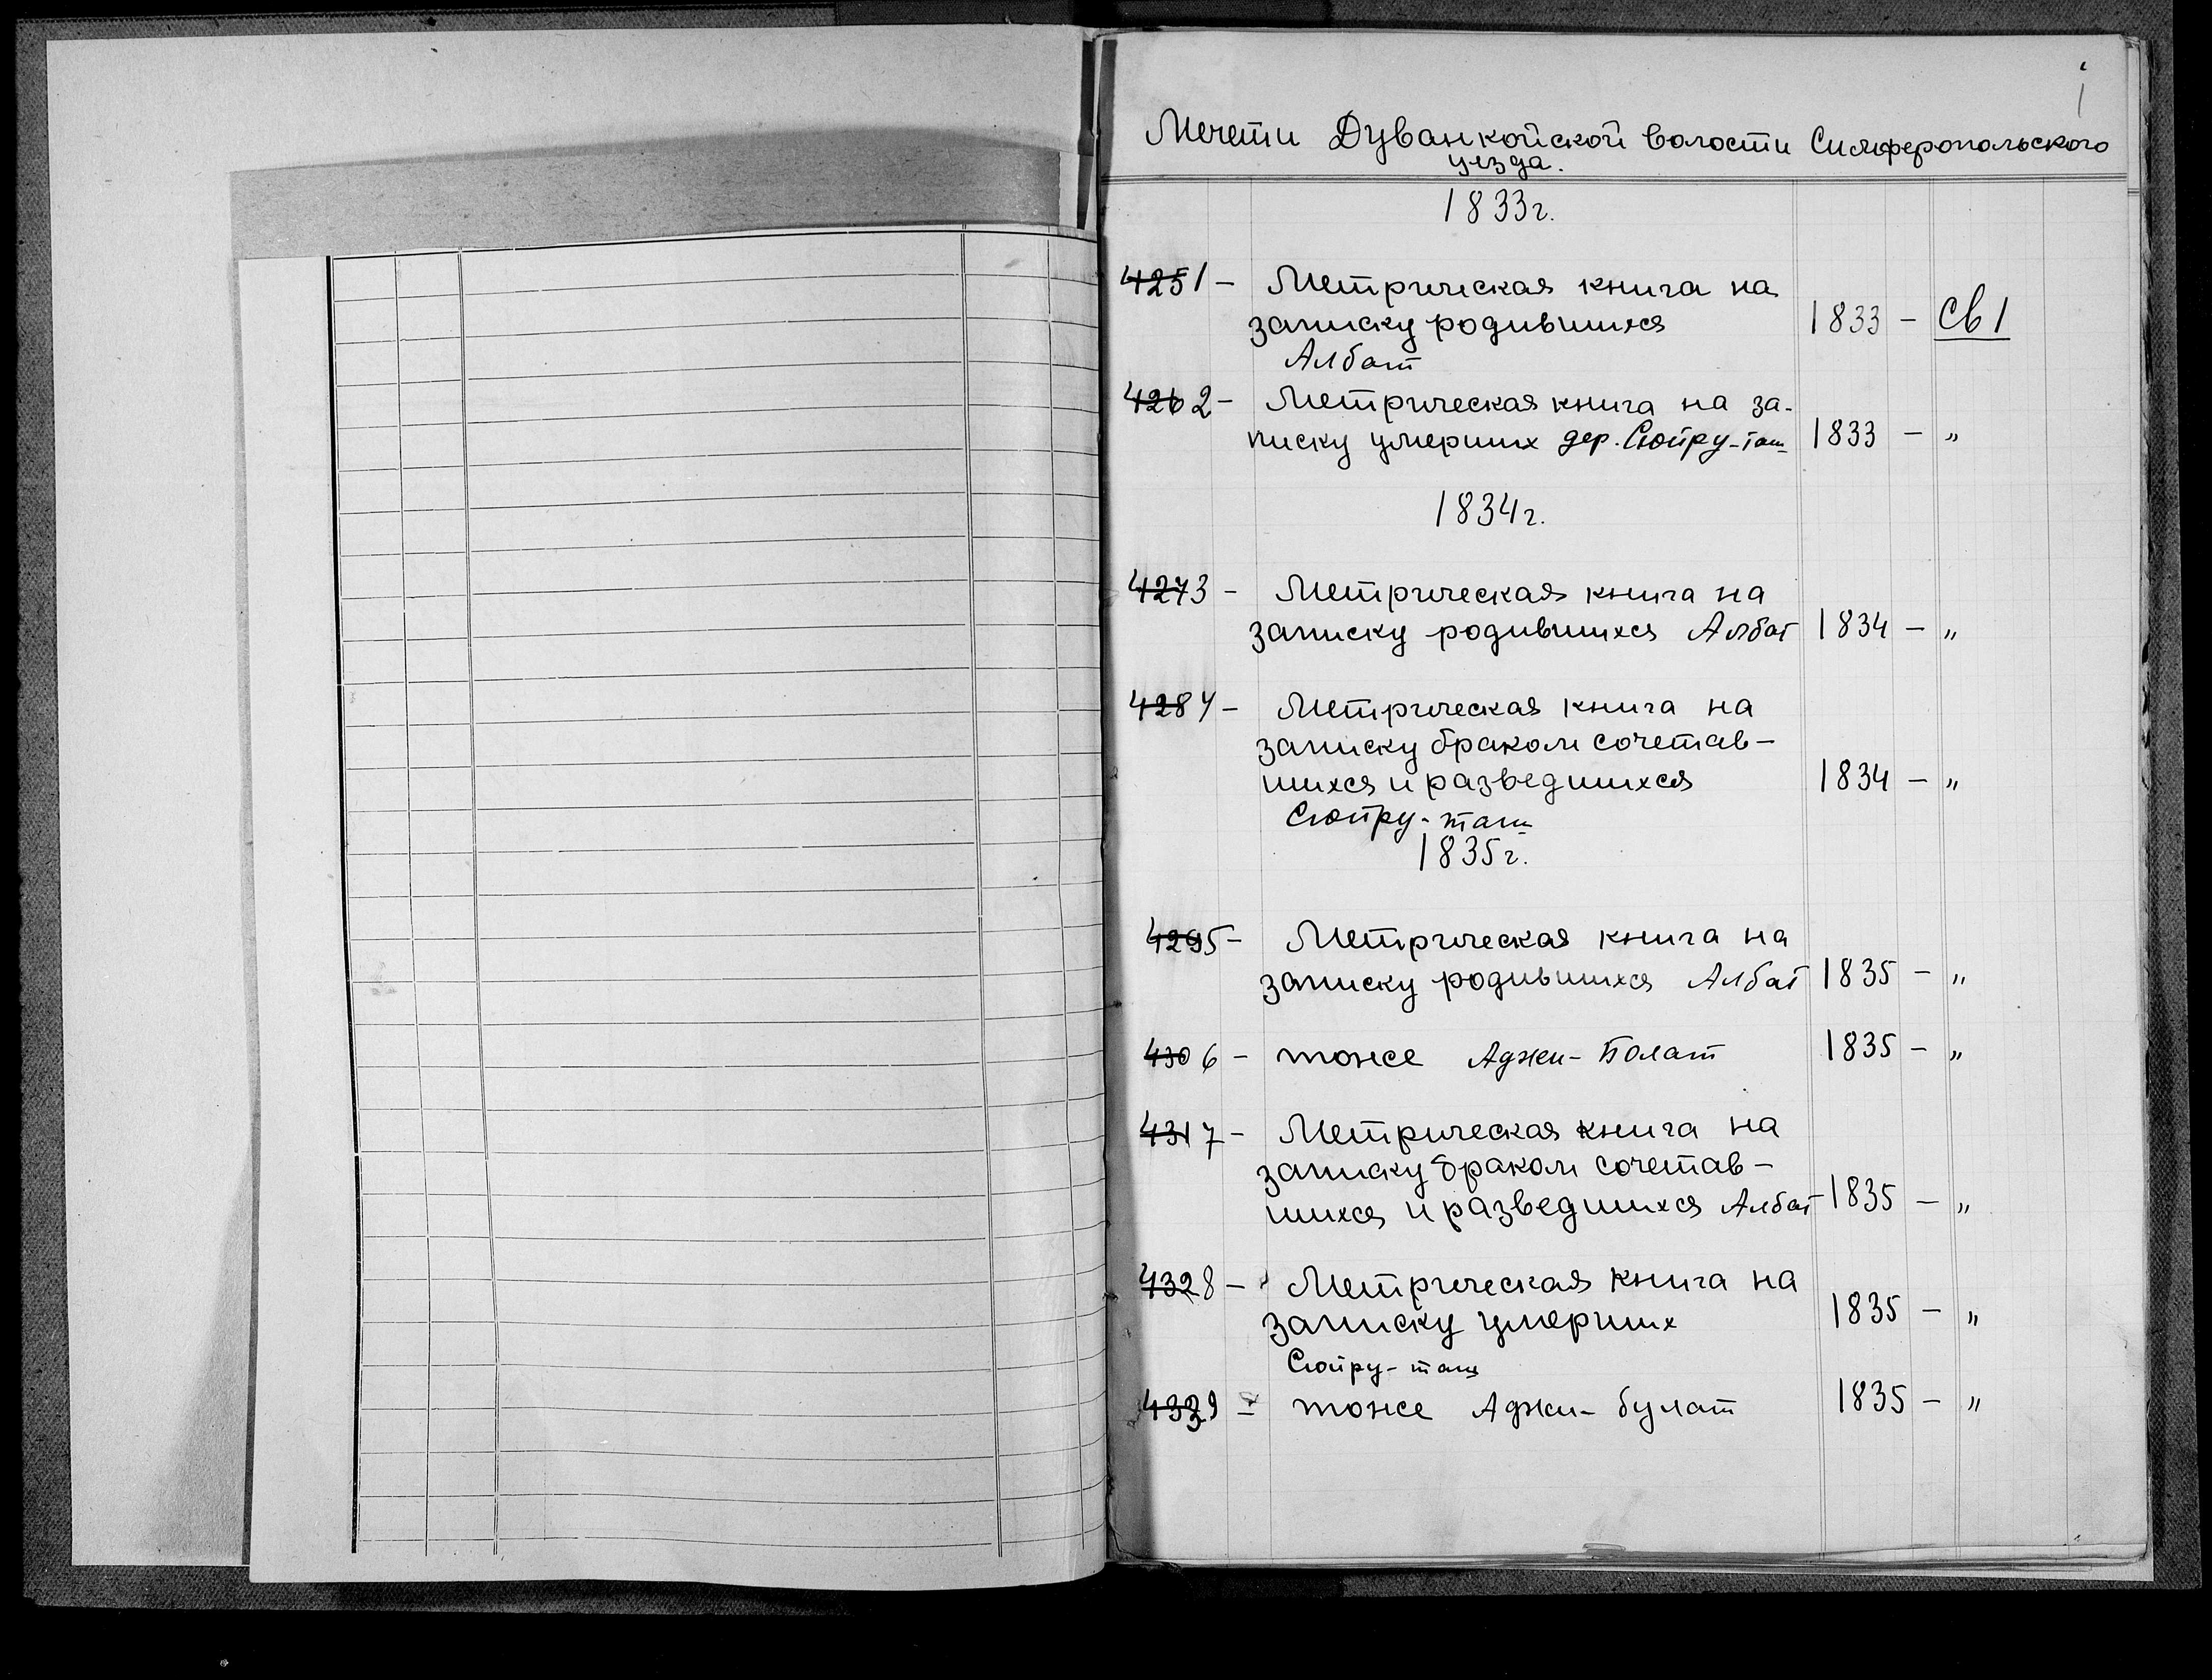 1
Мечети Дуванкойской волости Симферопольского
уезда.
1833г.
4251 - Метрическая книга на
записку родившихся 1833 - Св 1
Албат
4262 - Метрическая книга на за-
писку умерших дер. Сюйру-таш 1833 - "
1834г.
4273 - Метрическая книга на
записку родившихся Албат 1834 - "
4284 - Метрическая книга на
записку браком сочетав-
шихся и разведшихся 1834 - "
Сюйру-таш
1835г.
4295 - Метрическая книга на
записку родившихся Албат 1835 - "
4306 - тоже Аджи-Болат 1835 - "
4317 - Метрическая книга на
записку браком сочетав-
шихся и разведшихся Албат 1835 - "
4328 - Метрическая книга на
записку умерших 1835 - "
Сюйру-таш
4339 - тоже Аджи-булат 1835 - "